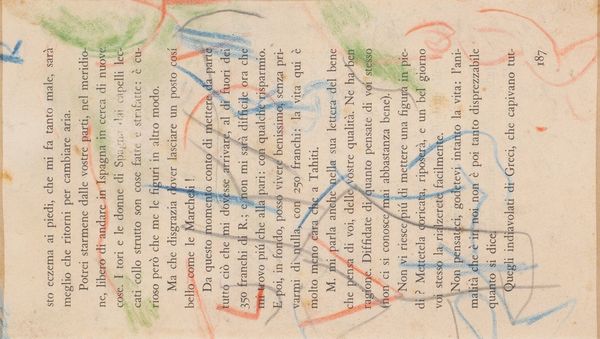 sto eczema ai piedi, che mi fa tanto male, sarà
meglio che ritorni per cambiare aria.
Potrei starmene dalle vostre parti, nel meridio-
ne, libero di andare in Ispagna in cerca di nuove
cose. I tori e le donne di Spagna dai capelli lec-
cati collo strutto son cose fatte e strafatte: è cu-
rioso però che me le figuri in altro modo.
Ma che disgrazia dover lasciare un posto cosí
bello come le Marchesi!
Da questo momento conto di mettere da parte
tutto ciò che mi dovesse arrivare, al di fuori dei
350 franchi di R.; e non mi sarà difficile ora che
mi trovo piú che alla pari: con qualche risparmio.
E poi, in fondo, posso vivere benissimo, senza pri-
varmi di nulla, con 250 franchi: la vita qui è
molto meno cara che a Tahiti.
M. mi parla anche nella sua lettera del bene
che pensa di voi, delle vostre qualità. Ne ha ben
ragione. Diffidate di quanto pensate di voi stesso
(non ci si conosce mai abbastanza bene).
Non vi riesce piú di mettere una figura in pie-
di? Mettetela coricata, riposerà, e un bel giorno
voi stesso la rialzerete facilmente.
Non pensateci, godetevi intanto la vita: l'ani-
malità che è in noi non è poi tanto disprezzabile
quanto si dice.
Quegli indiavolati di Greci, che capivano tut-
187